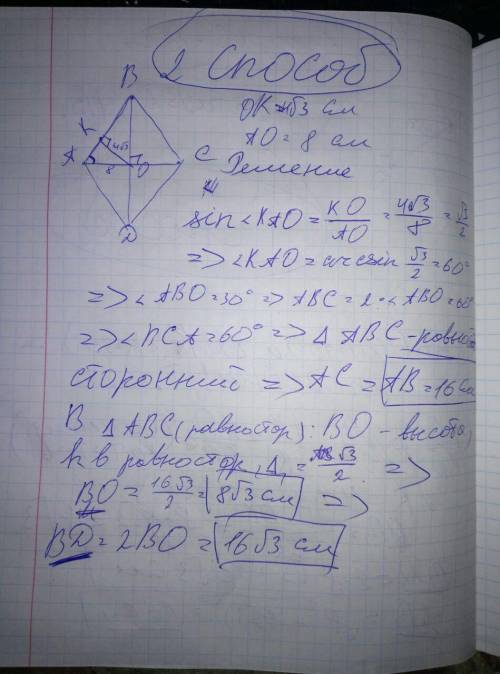 2 способ
B
OK = 4√3 см
K
4√3
AO = 8 см
A
8
O
C
Решение
D
sin∠KAO = KO/AO = 4√3/8 = √3/2
=> ∠KAO = arcsin √3/2 = 60°
=> ∠ABO = 30° => ABC = 2·∠ABO = 60°
=> ∠BCA = 60° => Δ ABC - равно
сторонний => AC = AB = 16 см
В Δ ABC (равностор): BO - высота,
h в равностор. Δ = AB√3/2 =>
BO = 16√3/2 = 8√3 см =>
BD = 2BO = 16√3 см